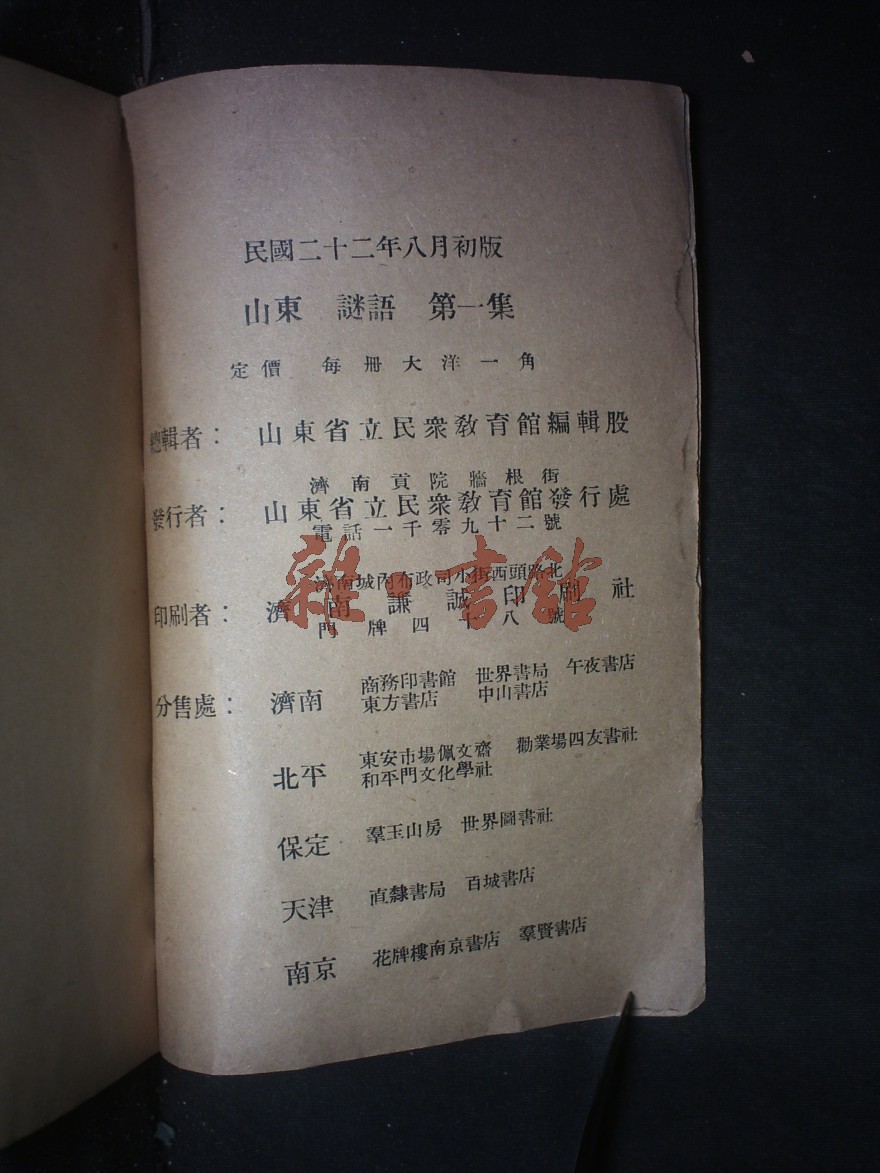 民國二十二年八月初版
山東 謎語 第一集
定價 每冊大洋一角
總輯者： 山東省立民衆教育館編輯股
濟南貢院牆根街
發行者： 山東省立民衆教育館發行處
電話一千零九十二號
濟南城內布政司小街西頭路北
印刷者： 濟南謙誠印刷社
門牌四十八號
分售處： 濟南 商務印書館 世界書局 午夜書店
東方書店 中山書店
北平 東安市場佩文齋 勸業場四友書社
和平門文化學社
保定 羣玉山房 世界圖書社
天津 直隸書局 百城書店
南京 花牌樓南京書店 羣賢書店
雜·書館